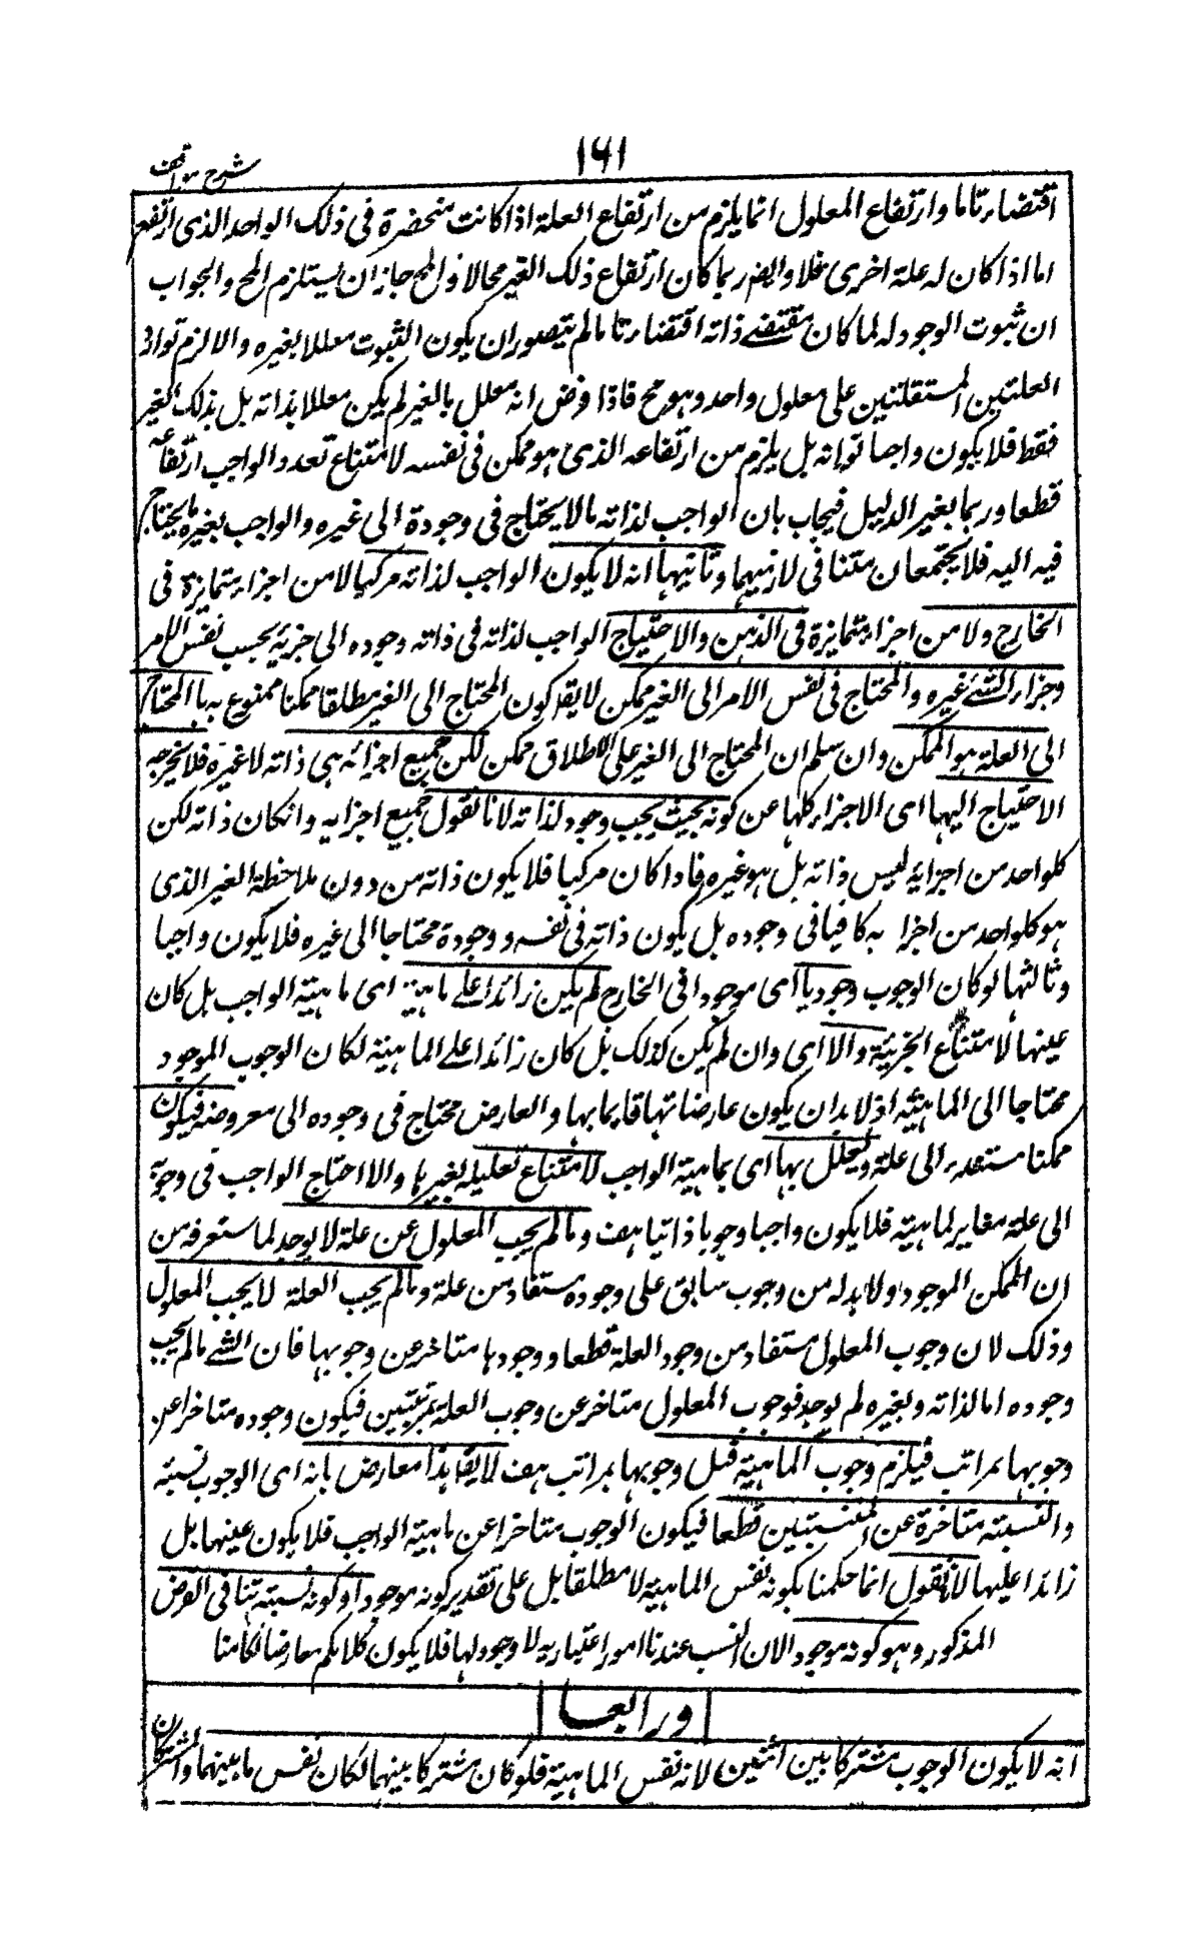 ١٦١
شرح مواقف
اقتضاء تاما وارتفاع المعلول انما يلزم من ارتفاع العلة اذا كانت منحصرة فى ذلك الواحد الذى ارتفع
اما اذا كان له علة اخرى فلا وايضر ربما كان ارتفاع ذلك الغير محالا والمح جاز ان يستلزم المح والجواب
ان ثبوت الوجود له لما كان مقتضے ذاته اقتضاء تاما لم يتصور ان يكون الثبوت معللا بغيره والا لزم توارد
العلتين المستقلتين على معلول واحد وهو مح فاذا فرض انه معلل بالغير لم يكن معللا بذاته بل بذلك الغير
فقط فلا يكون واجبا لذاته بل يلزم من ارتفاعه الذى هو ممكن فى نفسه لامتناع تعدد الواجب ارتفاعه
قطعا وربما يغير الدليل فيجاب بان الواجب لذاته مالا يحتاج فى وجوده الى غيره والواجب بغيره ما يحتاج
فيه اليه فلا يجتمعان لتنافى لازميهما وثانيها انه لا يكون الواجب لذاته مركبا لا من اجزاء متمايزة فى
الخارج ولا من اجزاء متمايزة فى الذهن والا احتياج الواجب لذاته فى ذاته وجوده الى جزئه بحسب نفس الامر
وجزء الشئے غيره والمحتاج فى نفس الامر الى الغير ممكن لا يقد كون المحتاج الى الغير مطلقا ممكنا ممنوع بل المحتاج
الى العلة هو الممكن وان سلم ان المحتاج الى الغير على الاطلاق ممكن لكن جميع اجزائه هى ذاته لا غيره فلا يخرجه
الاحتياج اليها اى الاجزاء كلها عن كونه بحيث يجب وجوده لذاته لانا نقول جميع اجزايه وانكان ذاته لكن
كلواحد من اجزايه ليس ذاته بل هو غيره فاذا كان مركبا فلا يكون ذاته من دون ملاحظة الغير الذى
هو كلواحد من اجزا يه كافيا فى وجوده بل يكون ذاته فى نفسه ووجوده محتاجا الى غيره فلا يكون واجبا
وثالثها لو كان الوجوب وجوديا اى موجودا فى الخارج لم يكن زائدا على ماهيته اى ماهية الواجب بل كان
عينها لامتناع الجزئية والا اى وان لم يكن كذلك بل كان زائدا على الماهية لكان الوجوب الموجود
محتاجا الى الماهية اذ لابد ان يكون عارضا لها قايما بها والعارض محتاج فى وجوده الى معروضه فيكون
ممكنا مستندا الى علة ويعلل بها اى بماهية الواجب لامتناع تعليله بغيرها والا احتاج الواجب فى وجوبه
الى علة مغاير لماهيته فلا يكون واجبا وجوبا ذاتيا هف ومالم يجب المعلول عن علة لا يوجد لما ستعرفه من
ان الممكن الموجود لابد له من وجوب سابق على وجوده مستفاد من علة ومالم يجب العلة لا يجب المعلول
وذلك لان وجوب المعلول مستفاد من وجود العلة قطعا ووجودها متاخر عن وجوبها فان الشئے مالم يجب
وجوده اما لذاته ولغيره لم يوجد فوجوب المعلول متاخر عن وجوب العلة بمرتبتين فيكون وجوده متاخرا عن
وجوبها بمراتب فيلزم وجوب الماهية قبل وجوبها بمراتب هف لا يقد هذا معارض بانه اى الوجوب نسبته
والنسبته متاخرة عن المنتسبين قطعا فيكون الوجوب متاخرا عن ماهية الواجب فلا يكون عينها بل
زائدا عليها لانا نقول انما حكمنا بكونه نفس الماهية لا مطلقا بل على تقدير كونه موجودا وكونه نسبته تنافى الفرض
المذكور وهو كونه موجود الان النسب عندنا امور اعتباريه لا وجود لها فلا يكون كلامكم معارضا لكلامنا
ورابعها
انه لا يكون الوجوب مشتركا بين اثنين لانه نفس الماهية فلو كان مشتركا بينهما لكان نفس ماهيتهما والمشتركان